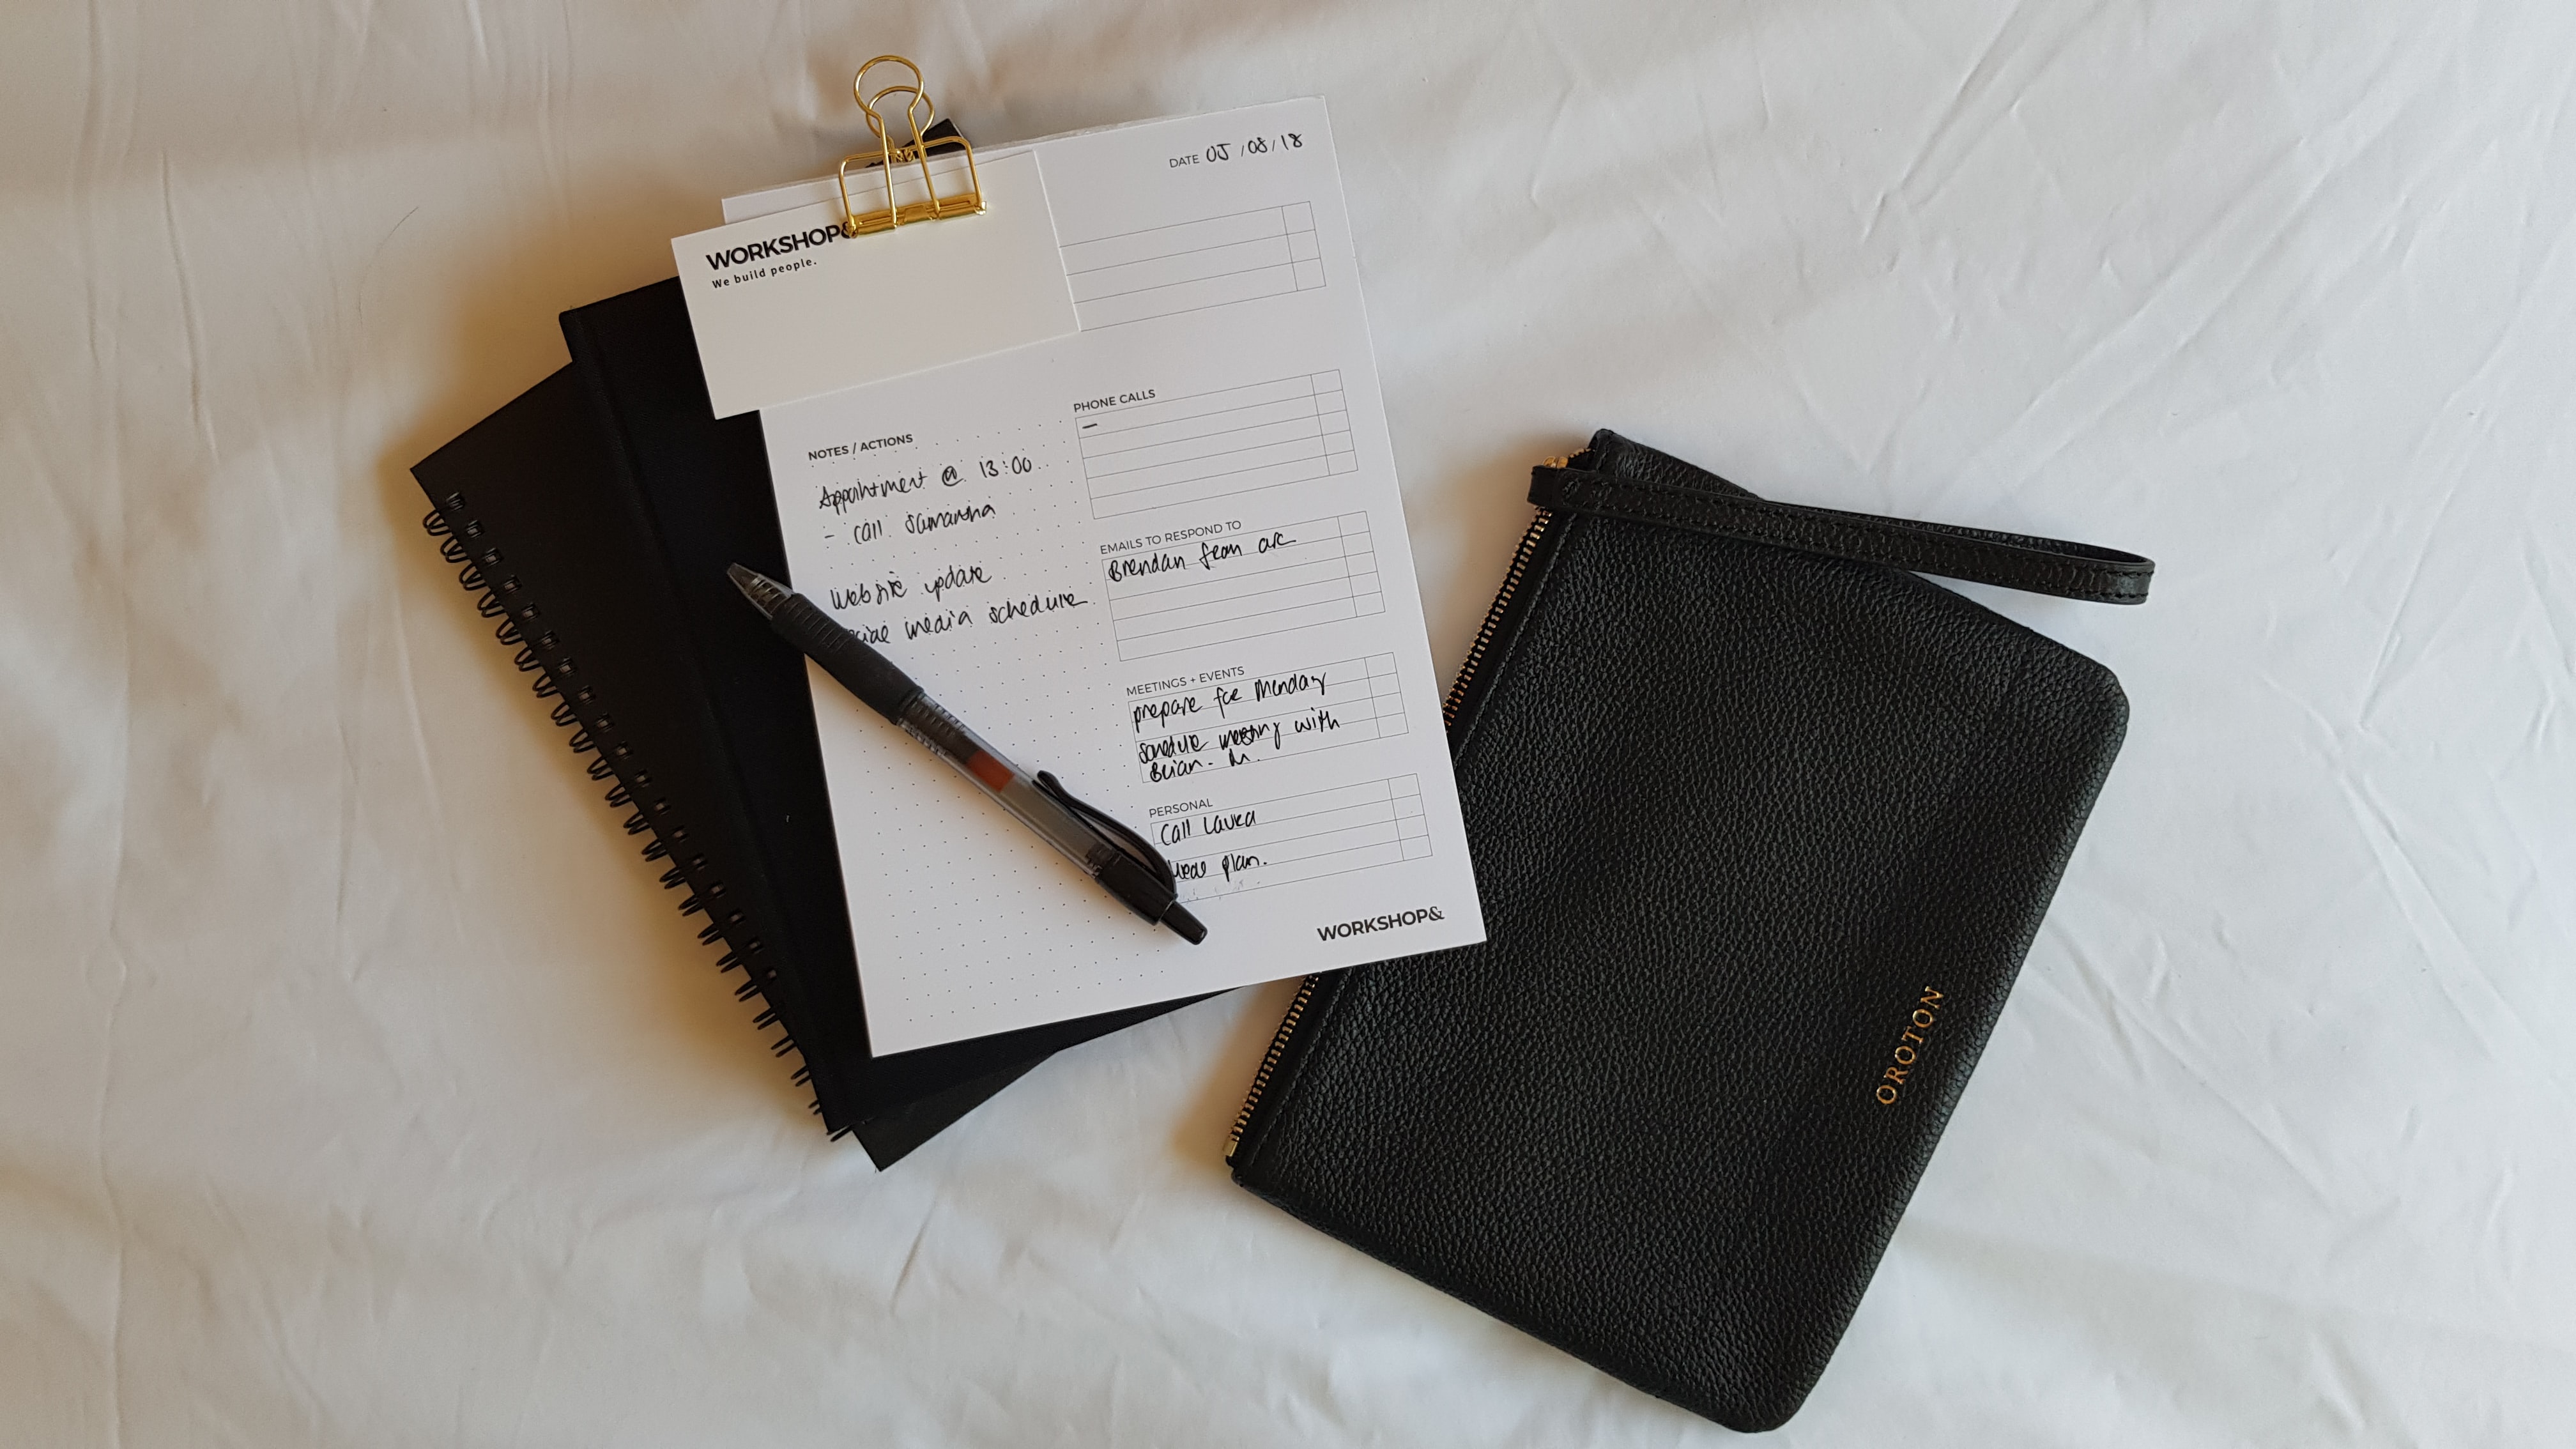 DATE 05/08/18
WORKSHOP&
We build people.
NOTES / ACTIONS
Appointment @ 13:00
- call Samantha
Website update
media schedule
PHONE CALLS
—
EMAILS TO RESPOND TO
Brendan from arc
MEETINGS + EVENTS
prepare for Monday
schedule meeting with
Brian. M.
PERSONAL
Call Laura
Meal plan.
WORKSHOP&
OROTON